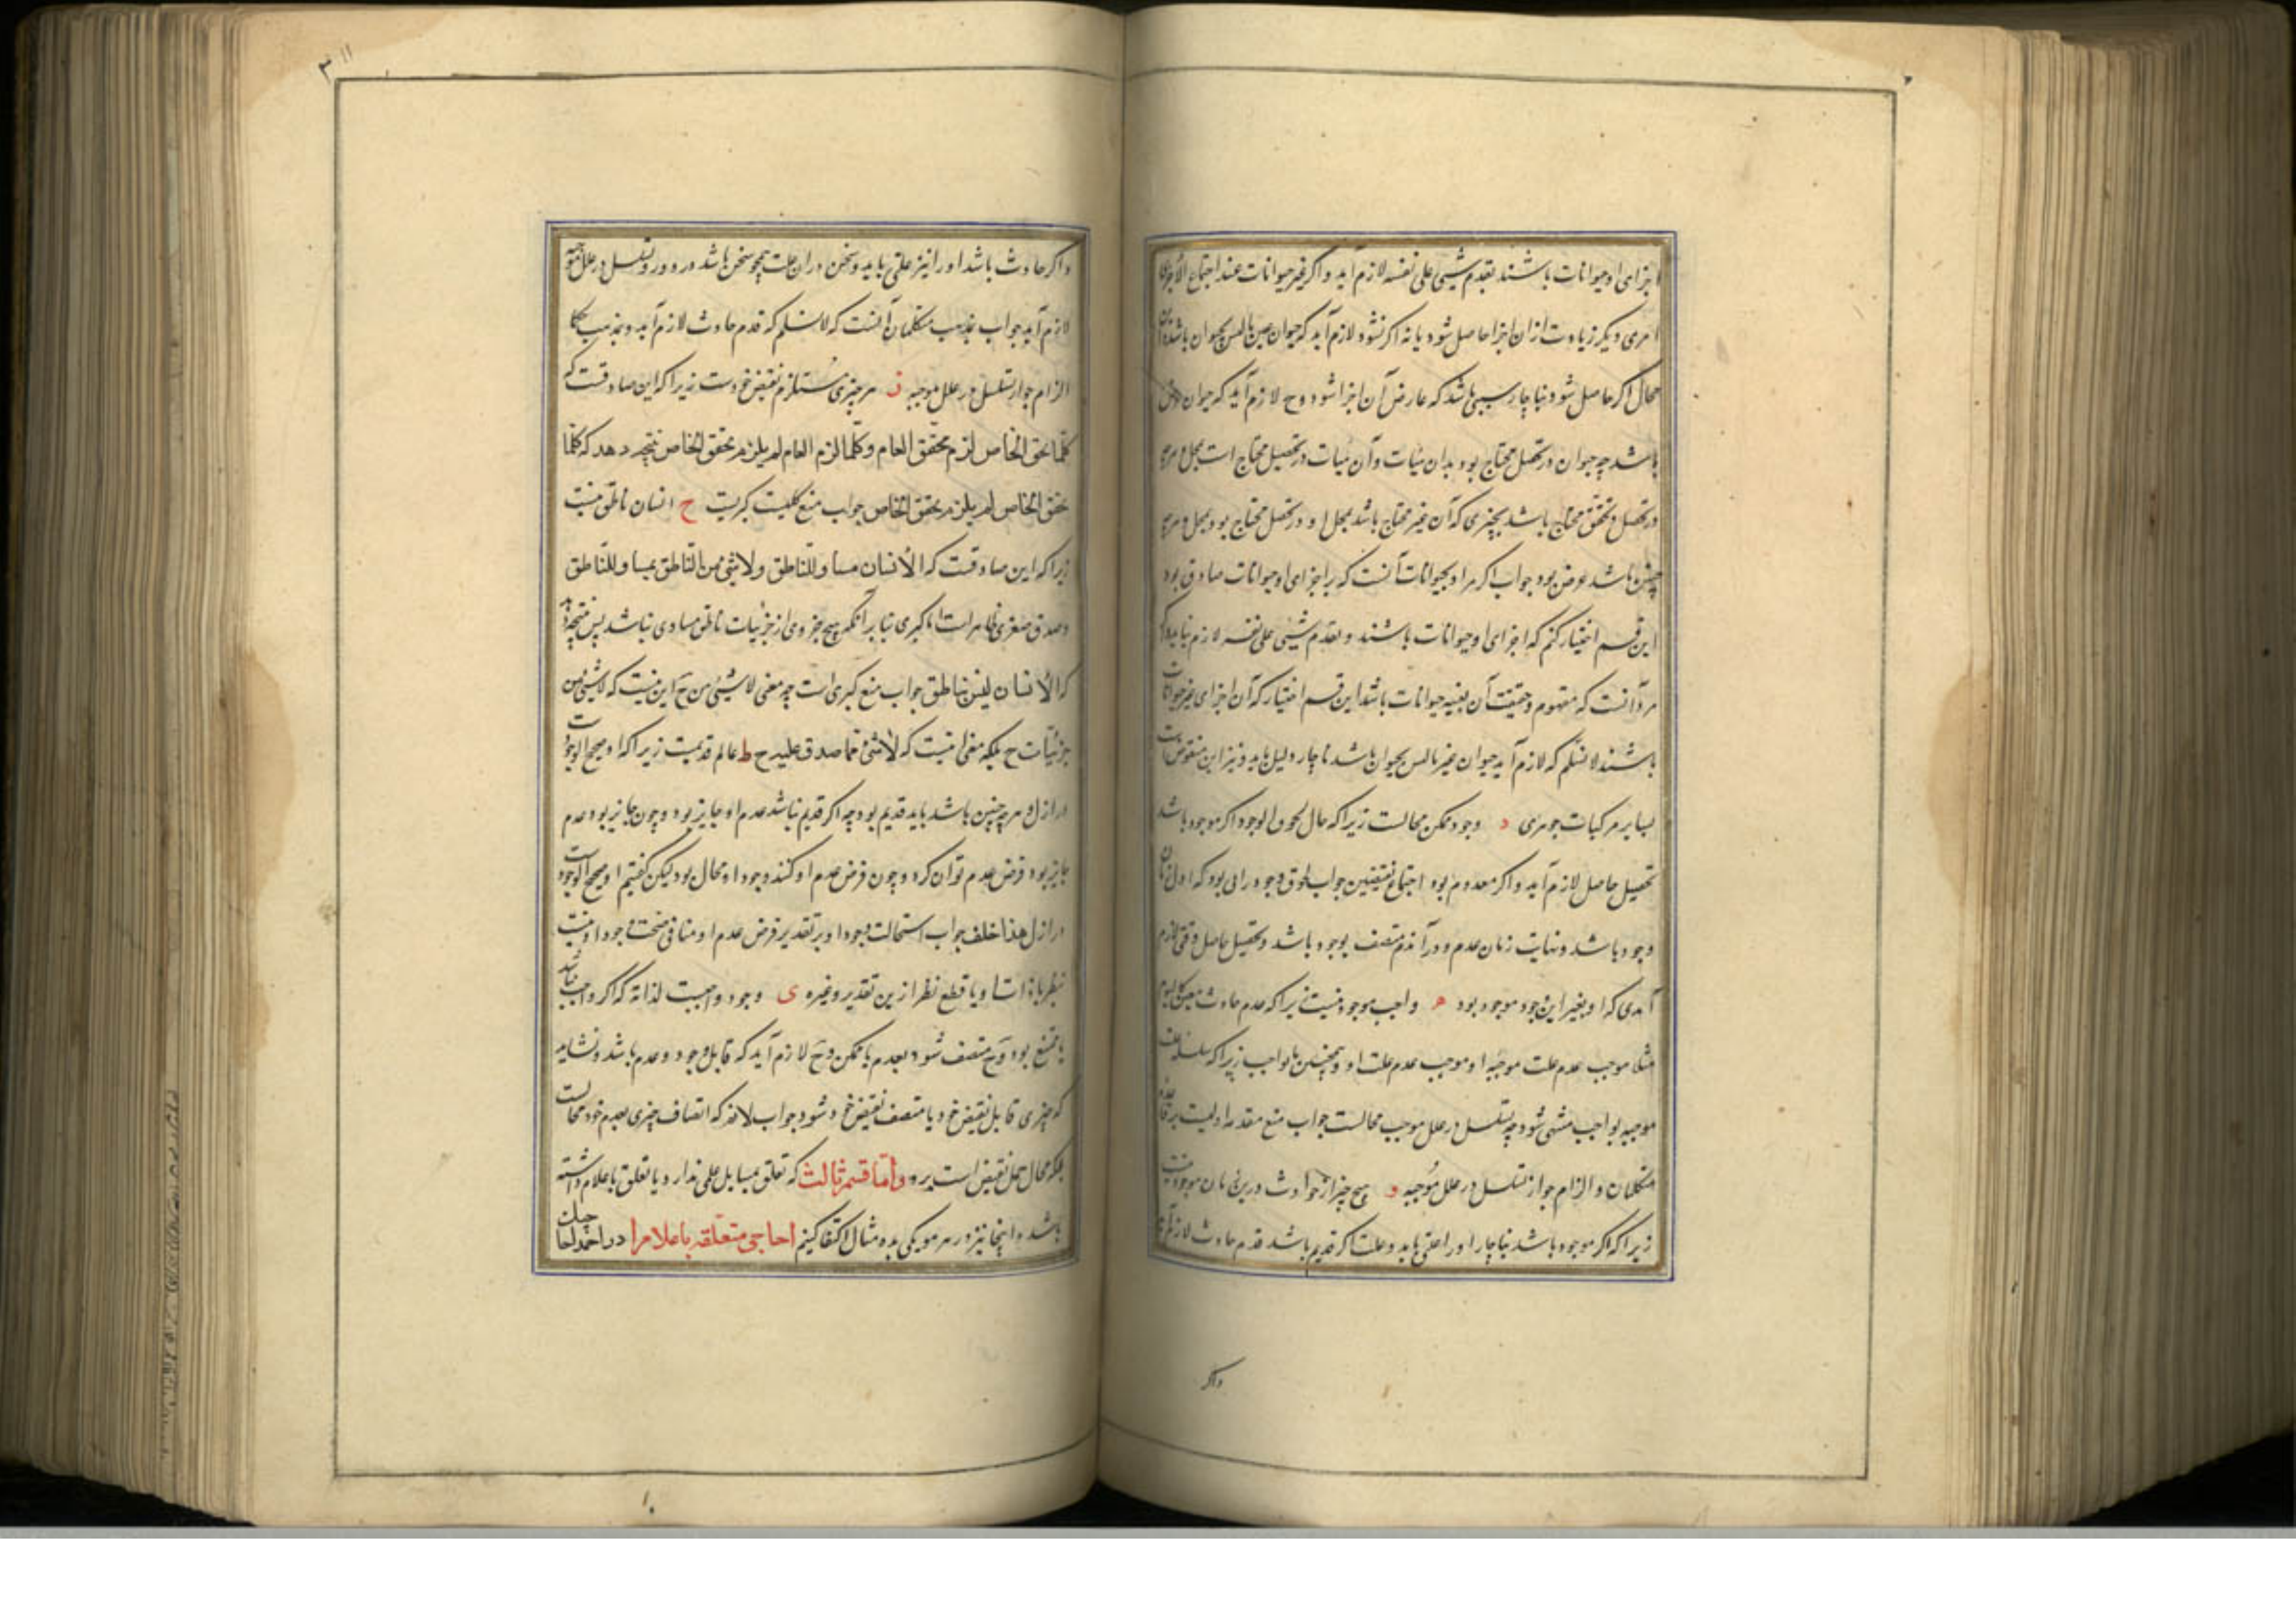 اجزای او حیوانات باشند تقدم شیئی علی نفسه لازم آید و اگر غیر حیوانات عند اجتماع الاجزای
امری دیگر زیادت از ان اجزا حاصل شود یا نه اگر نشود لازم آید که حیوان عین ما لیس بحیوان باشد
محال اگر حاصل شود بناچار سببی باشد که عارض آن اجزا شود و ح لازم آید که حیوان عرض
باشد چه حیوان در تحصل محتاج بود بدان هیات و آن هیات در تحصل محتاج است بمحل و هرچه
در تحصل و تحقق محتاج باشد بچیزی که آن غیر محتاج باشد بمحل او در تحصل محتاج بود بمحل و هرچه
چنین باشد عرض بود جواب اگر مراد بحیوانات آنست که بر اجزای او حیوانات صادق بود
این قسم اختیار کنم که اجزای او حیوانات باشند و تقدم شیئی علی نفسه لازم نیاید و اگر
مراد آنست که مفهوم و حقیقت آن بعینه حیوانات باشد این قسم اختیار که آن اجزای غیر حیوانات
باشند لا نسلم که لازم آید حیوان غیر ما لیس بحیوان باشد ناچار دلیل باید و نیز این منقوض است
بسایر مرکبات جوهری د وجود ممکن محالست زیرا که حال لحوق الوجود اگر موجود باشد
تحصیل حاصل لازم آید و اگر معدوم بود اجتماع نقیضین جواب لحوق وجود در آنی بود که اول زمان
وجود باشد و نهایت زمان عدم و در آن دم متصف بوجود باشد و تحصیل حاصل وقتی لازم
آمدی که او بغیر این وجود موجود بود ه واجب موجود نیست زیرا که عدم حادث معین کالیوم
مثلا موجب عدم علت موجبه او موجب عدم علت او و همچنین تا بواجب زیرا که سلسله علت
موجبه بواجب منتهی شود چه تسلسل در علل موجب محالست جواب منع مقدمه اولیست بر قاعده
متکلمان و الزام جواز تسلسل در علل موجبه و هیچ چیز از حوادث درین زمان موجود نیست
زیرا که اگر موجود باشد بناچار او را علتی باید و علت اگر قدیم باشد قدم حادث لازم آید
واکر
واگر حادث باشد او را نیز علتی باید و سخن در ان علت همچو سخن باشد در و دور و تسلسل در علل موجبه
لازم آید جواب بمذهب متکلمان آنست که لا نسلم که قدم حادث لازم آید و بمذهب حکما
الزام جواز تسلسل در علل موجبه ز هر چیزی مستلزم نقیض خودست زیرا که این صادقست که
کلما تحقق الخاص لزم تحقق العام و کلما لزم العام لم یلزم تحقق الخاص نتیجه دهد که کلما
تحقق الخاص لم یلزم تحقق الخاص جواب منع کلیت کبریست ح انسان ناطق نیست
زیرا که این صادقست که الانسان مساو للناطق ولا شئ من الناطق بمساو للناطق
و صدق صغری ظاهر است اما کبری بنا بر آنکه هیچ جزوی از جزئیات ناطق مساوی نباشد پس نتیجه دهد
که الانسان لیس بناطق جواب منع کبری است چه معنی لا شیئ من ح این نیست که لا شیئ من
جزئیات ح بلکه معنی اینست که لا شئ مما صدق علیه ح ط عالم قدیمست زیرا که او صحیح الوجود است
در ازل و هر چه چنین باشد باید قدیم بود چه اگر قدیم نباشد عدم او جایز بود و چون جایز بود عدم
جایز بود فرض عدم توان کرد و چون فرض عدم او کنند وجود او محال بود لیکن گفتیم او صحیح الوجود است
در ازل هذا خلف جواب استحالت وجود او بر تقدیر فرض عدم او منافی صحت وجود او نیست
نظر با ذات او یا قطع نظر ازین تقدیر و غیره ی وجود واجبست لذاته که اگر واجب نباشد
یا ممتنع بود و ح متصف شود بعدم یا ممکن و ح لازم آید که قابل وجود و عدم باشد و نشاید
که چیزی قابل نقیض خود یا متصف نقیض خود شود جواب لا نم که اتصاف چیزی بعدم خود محالست
بلکه محال حمل نقیض است برو واما قسم ثالث که تعلق بمسایل علمی ندارد یا تعلق باعلام داشته
باشد و اینجا نیز در هر موی یکی به ده مثال اکتفا کنیم احاجی متعلقه باعلام را در احمد احا